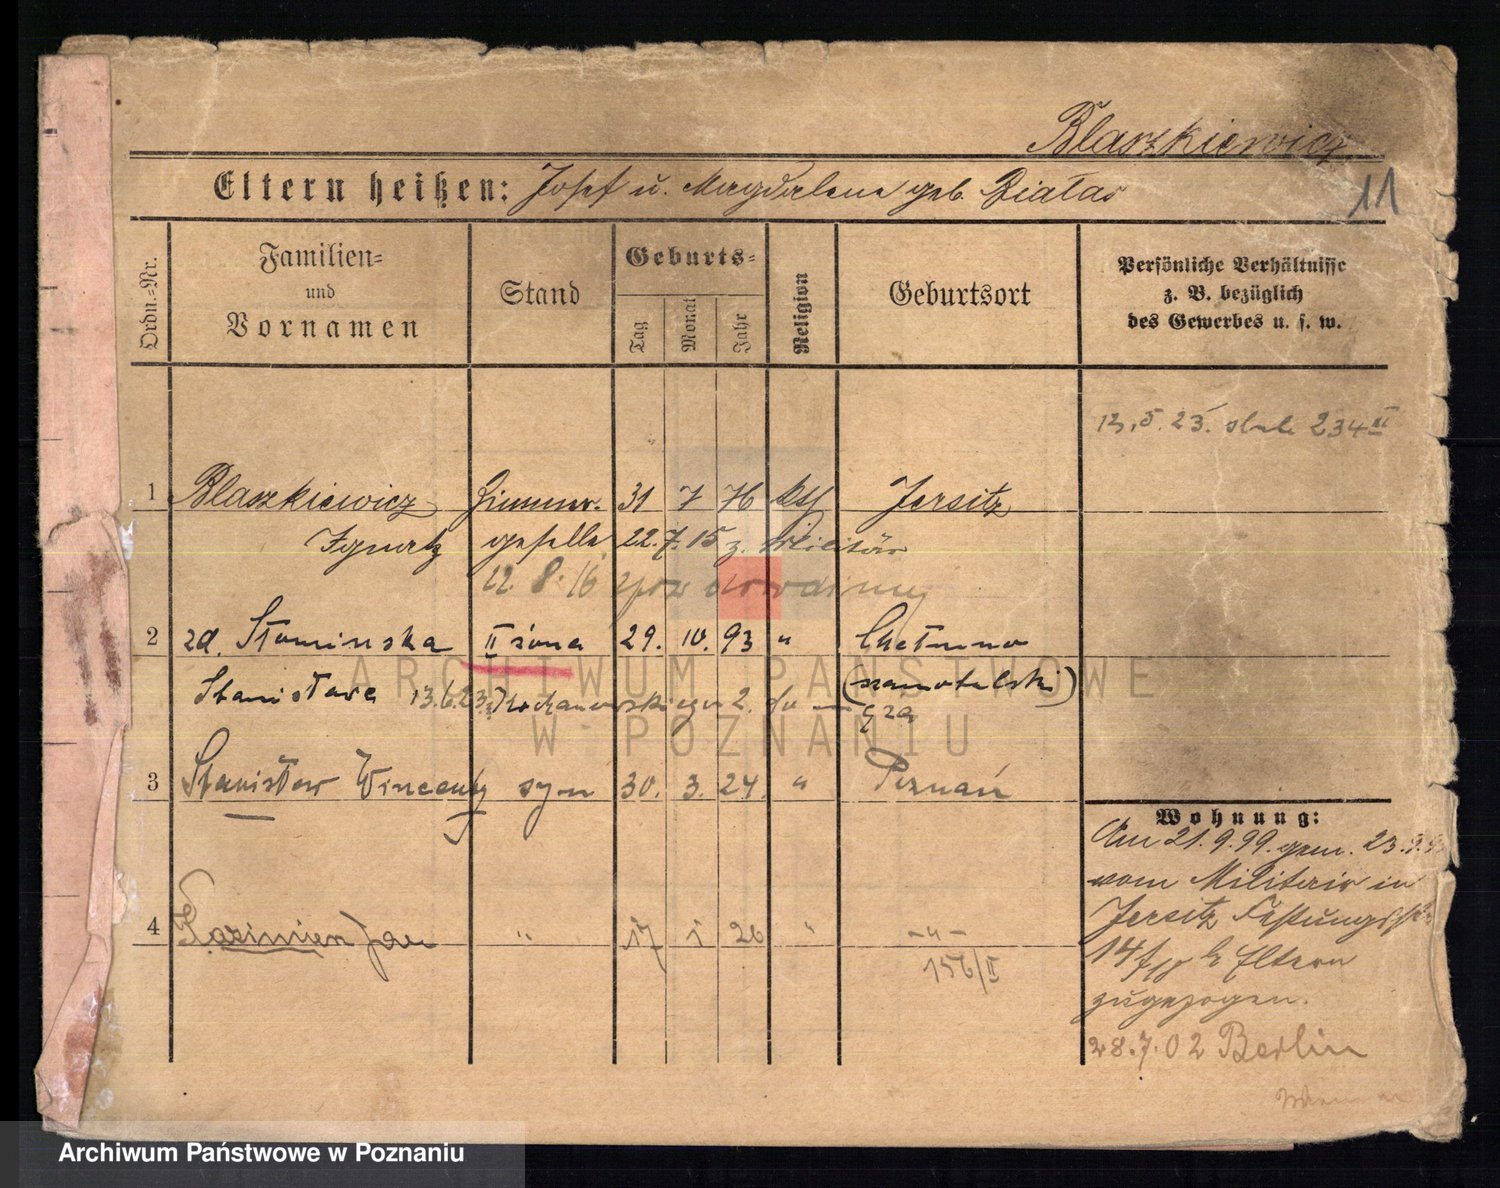 Blaszkiewicz
Eltern heißen: Josef u. Magdalena geb. Białas
11
Ordn.-Nr.
Familien-
und
Vornamen
Stand
Geburts-
Tag
Monat
Jahr
Religion
Geburtsort
Persönliche Verhältnisse
z. B. bezüglich
des Gewerbes u. s. w.
13.5.23. 234 II
1 Blaszkiewicz Zimmer- 31 7 76 kth Jersitz
Ignatz geselle 22.7.15 z. Militär
22.8.16
2 zd. Słominska II żona 29. 10. 93 " Chełmno
Stanisława 13.6.23 Kochanowskiego 2. (szamotulski)
3 Stanisław Wincenty syn 30. 3. 24. " Poznań
4 Kazimierz Jan " 17 1 26 " -"-
156/II
Wohnung:
Am 21.9.99. gem. 23.9.
vom Militär in
Jersitz Festungsstr.
14 b Eltern
zugezogen.
28.7.02 Berlin
ARCHIWUM PAŃSTWOWE
W POZNANIU
Archiwum Państwowe w Poznaniu